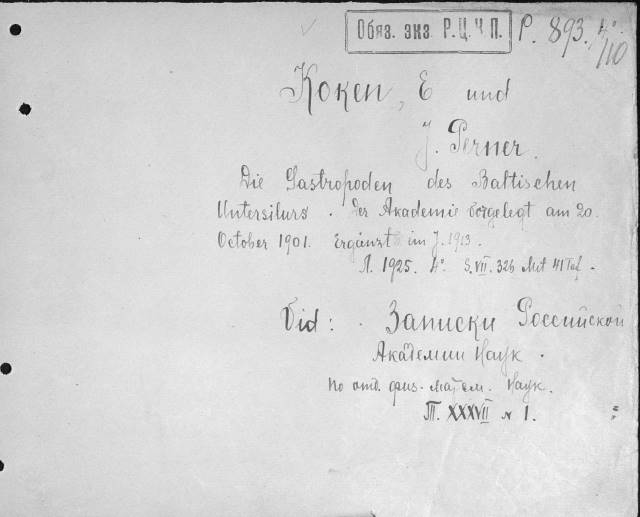 Обяз. экз. Р.Ц.Ч.П.
P. 893. 4°./110
Koken, E und
J. Perner.
Die Gastropoden des Baltischen
Untersilurs. Der Akademie vorgelegt am 20.
October 1901. Ergänzt im J. 1913.
Л. 1925. 4°. S. VII. 326 Mit 41 Taf.
Vid: Записки Российской
Академии Наук.
по отд. физ.-матем. Наук.
Т. XXXVII № 1.